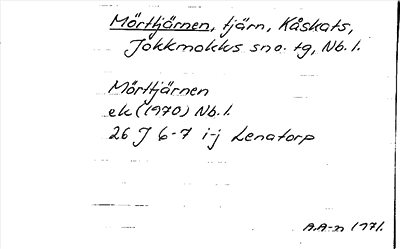 Mörttjärnen, tjärn, Kåskats,
Jokkmokks sna. tg, Nb. l.
Mörttjärnen
ek (1970) Nb. l.
26 J 6-7 i-j Lenatorp
A.A-n 1971.